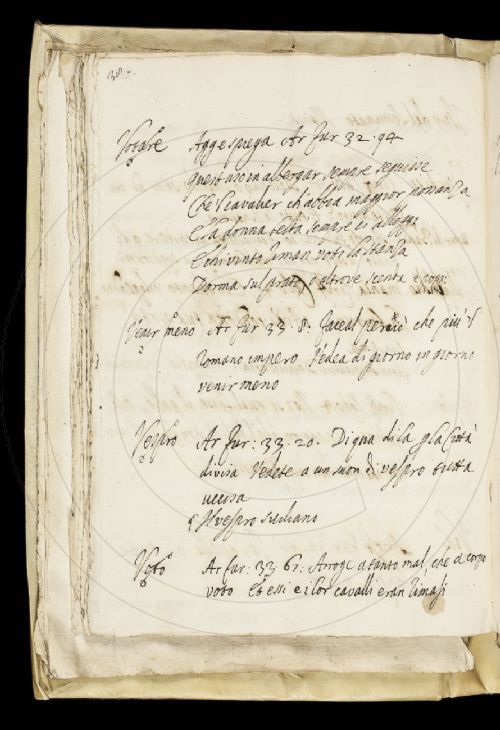 Votare Agge spiega Ar fur 32 . 94
quest'uso in albergar sempre seguisse
Ch'el cavalier ch'abbia maggior possanza
E la donna beltà sempre ci alloggi
E chi vinto riman voti la stanza
Dorma sul prato o altrove scenda e poggi
Venir meno Ar fur 33 . 8 : facea perciò che più 'l
romano impero Vedea di giorno in giorno
venir meno
Vespro Ar fur : 33 . 20 . Di qua di là gla Città
divisa Vedete a un mon di vespro tutta
uccisa
Il vespro siciliano
Voto Ar fur : 33 61 : Arroge a tanto mal, che a corpo
voto Et essi e i lor cavalli eran rimasi